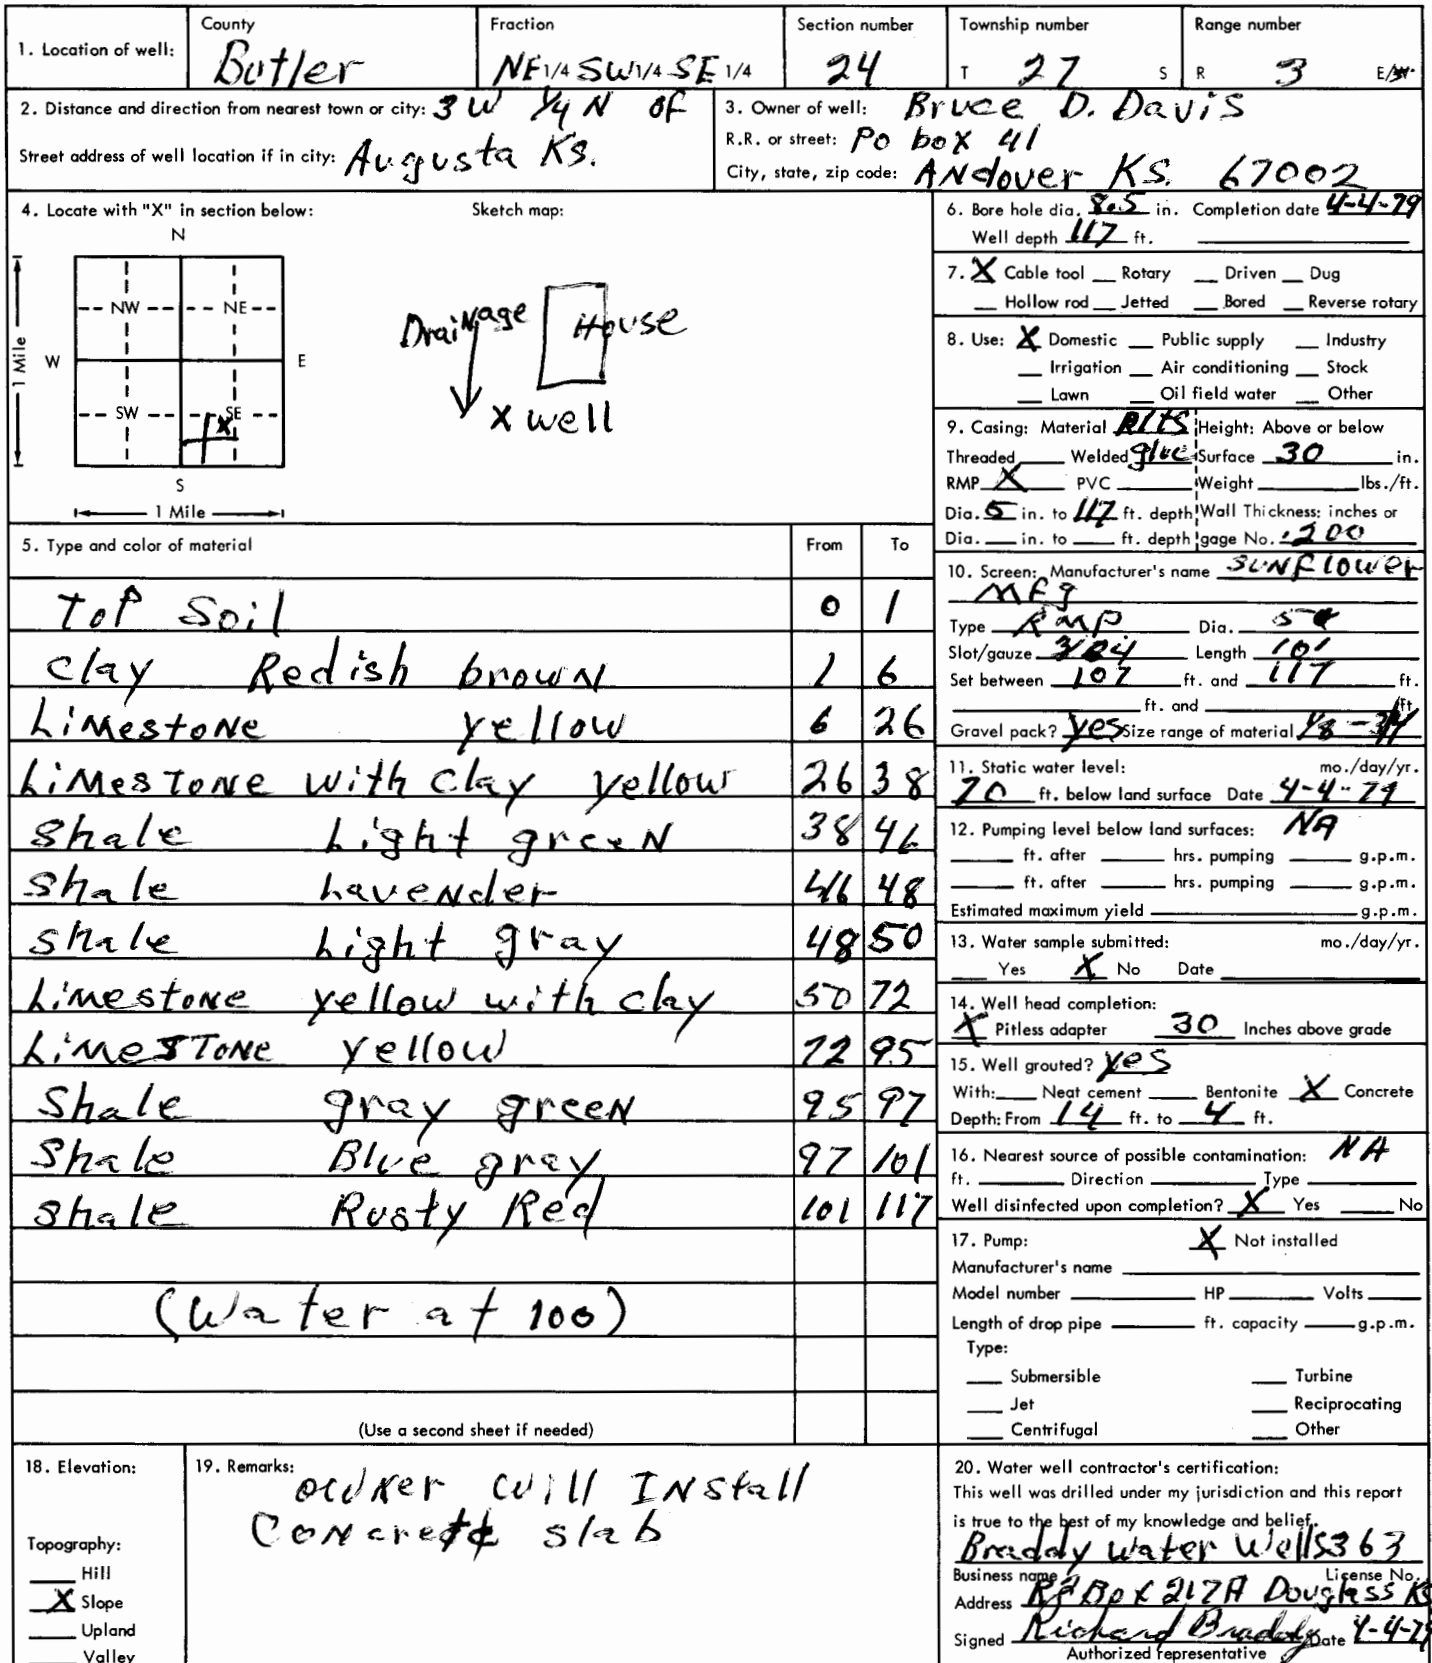 County Fraction Section number Township number Range number
1. Location of well: Butler NE 1/4 SW 1/4 SE 1/4 24 T 27 S R 3 E/W
2. Distance and direction from nearest town or city: 3 W 1/4 N OF
Street address of well location if in city: Augusta Ks.
3. Owner of well: Bruce D. Davis
R.R. or street: Po box 41
City, state, zip code: ANdover Ks. 67002
4. Locate with "X" in section below: Sketch map:
N
NW NE
W E
SW SE
X
S
1 Mile
1 Mile
Drainage House
X well
5. Type and color of material From To
Top Soil 0 1
Clay Redish browN 1 6
LiMestoNe yellow 6 26
LiMesToNe with Clay yellow 26 38
Shale Light greeN 38 46
Shale LaveNder 46 48
Shale Light gray 48 50
LiMestoNe yellow with clay 50 72
LiMeSToNe yellow 72 95
Shale gray greeN 95 97
Shale Blue gray 97 101
Shale Rusty Red 101 117
(Water at 100)
(Use a second sheet if needed)
6. Bore hole dia. 8.5 in. Completion date 4-4-79
Well depth 117 ft.
7. X Cable tool Rotary Driven Dug
Hollow rod Jetted Bored Reverse rotary
8. Use: X Domestic Public supply Industry
Irrigation Air conditioning Stock
Lawn Oil field water Other
9. Casing: Material Height: Above or below
Threaded Welded glue Surface 30 in.
RMP X PVC Weight lbs./ft.
Dia. 5 in. to 117 ft. depth Wall Thickness: inches or
Dia. in. to ft. depth gage No. .200
10. Screen: Manufacturer's name SUNFlower
MFg
Type RMP Dia. 5
Slot/gauze Length 10'
Set between 107 ft. and 117 ft.
ft. and ft
Gravel pack? yes Size range of material 1/8 - 3/4
11. Static water level: mo./day/yr.
70 ft. below land surface Date 4-4-79
12. Pumping level below land surfaces: NA
ft. after hrs. pumping g.p.m.
ft. after hrs. pumping g.p.m.
Estimated maximum yield g.p.m.
13. Water sample submitted: mo./day/yr.
Yes X No Date
14. Well head completion:
X Pitless adapter 30 Inches above grade
15. Well grouted? yes
With: Neat cement Bentonite X Concrete
Depth: From 14 ft. to 4 ft.
16. Nearest source of possible contamination: NA
ft. Direction Type
Well disinfected upon completion? X Yes No
17. Pump: X Not installed
Manufacturer's name
Model number HP Volts
Length of drop pipe ft. capacity g.p.m.
Type:
Submersible Turbine
Jet Reciprocating
Centrifugal Other
18. Elevation:
Topography:
Hill
X Slope
Upland
Valley
19. Remarks: owner will INstall
CoNcrete slab
20. Water well contractor's certification:
This well was drilled under my jurisdiction and this report
is true to the best of my knowledge and belief.
Braddy Water Wells 363
Business name License No.
Address R2 Box 217A Douglass Ks
Signed Richard Braddy Date 4-4-79
Authorized representative